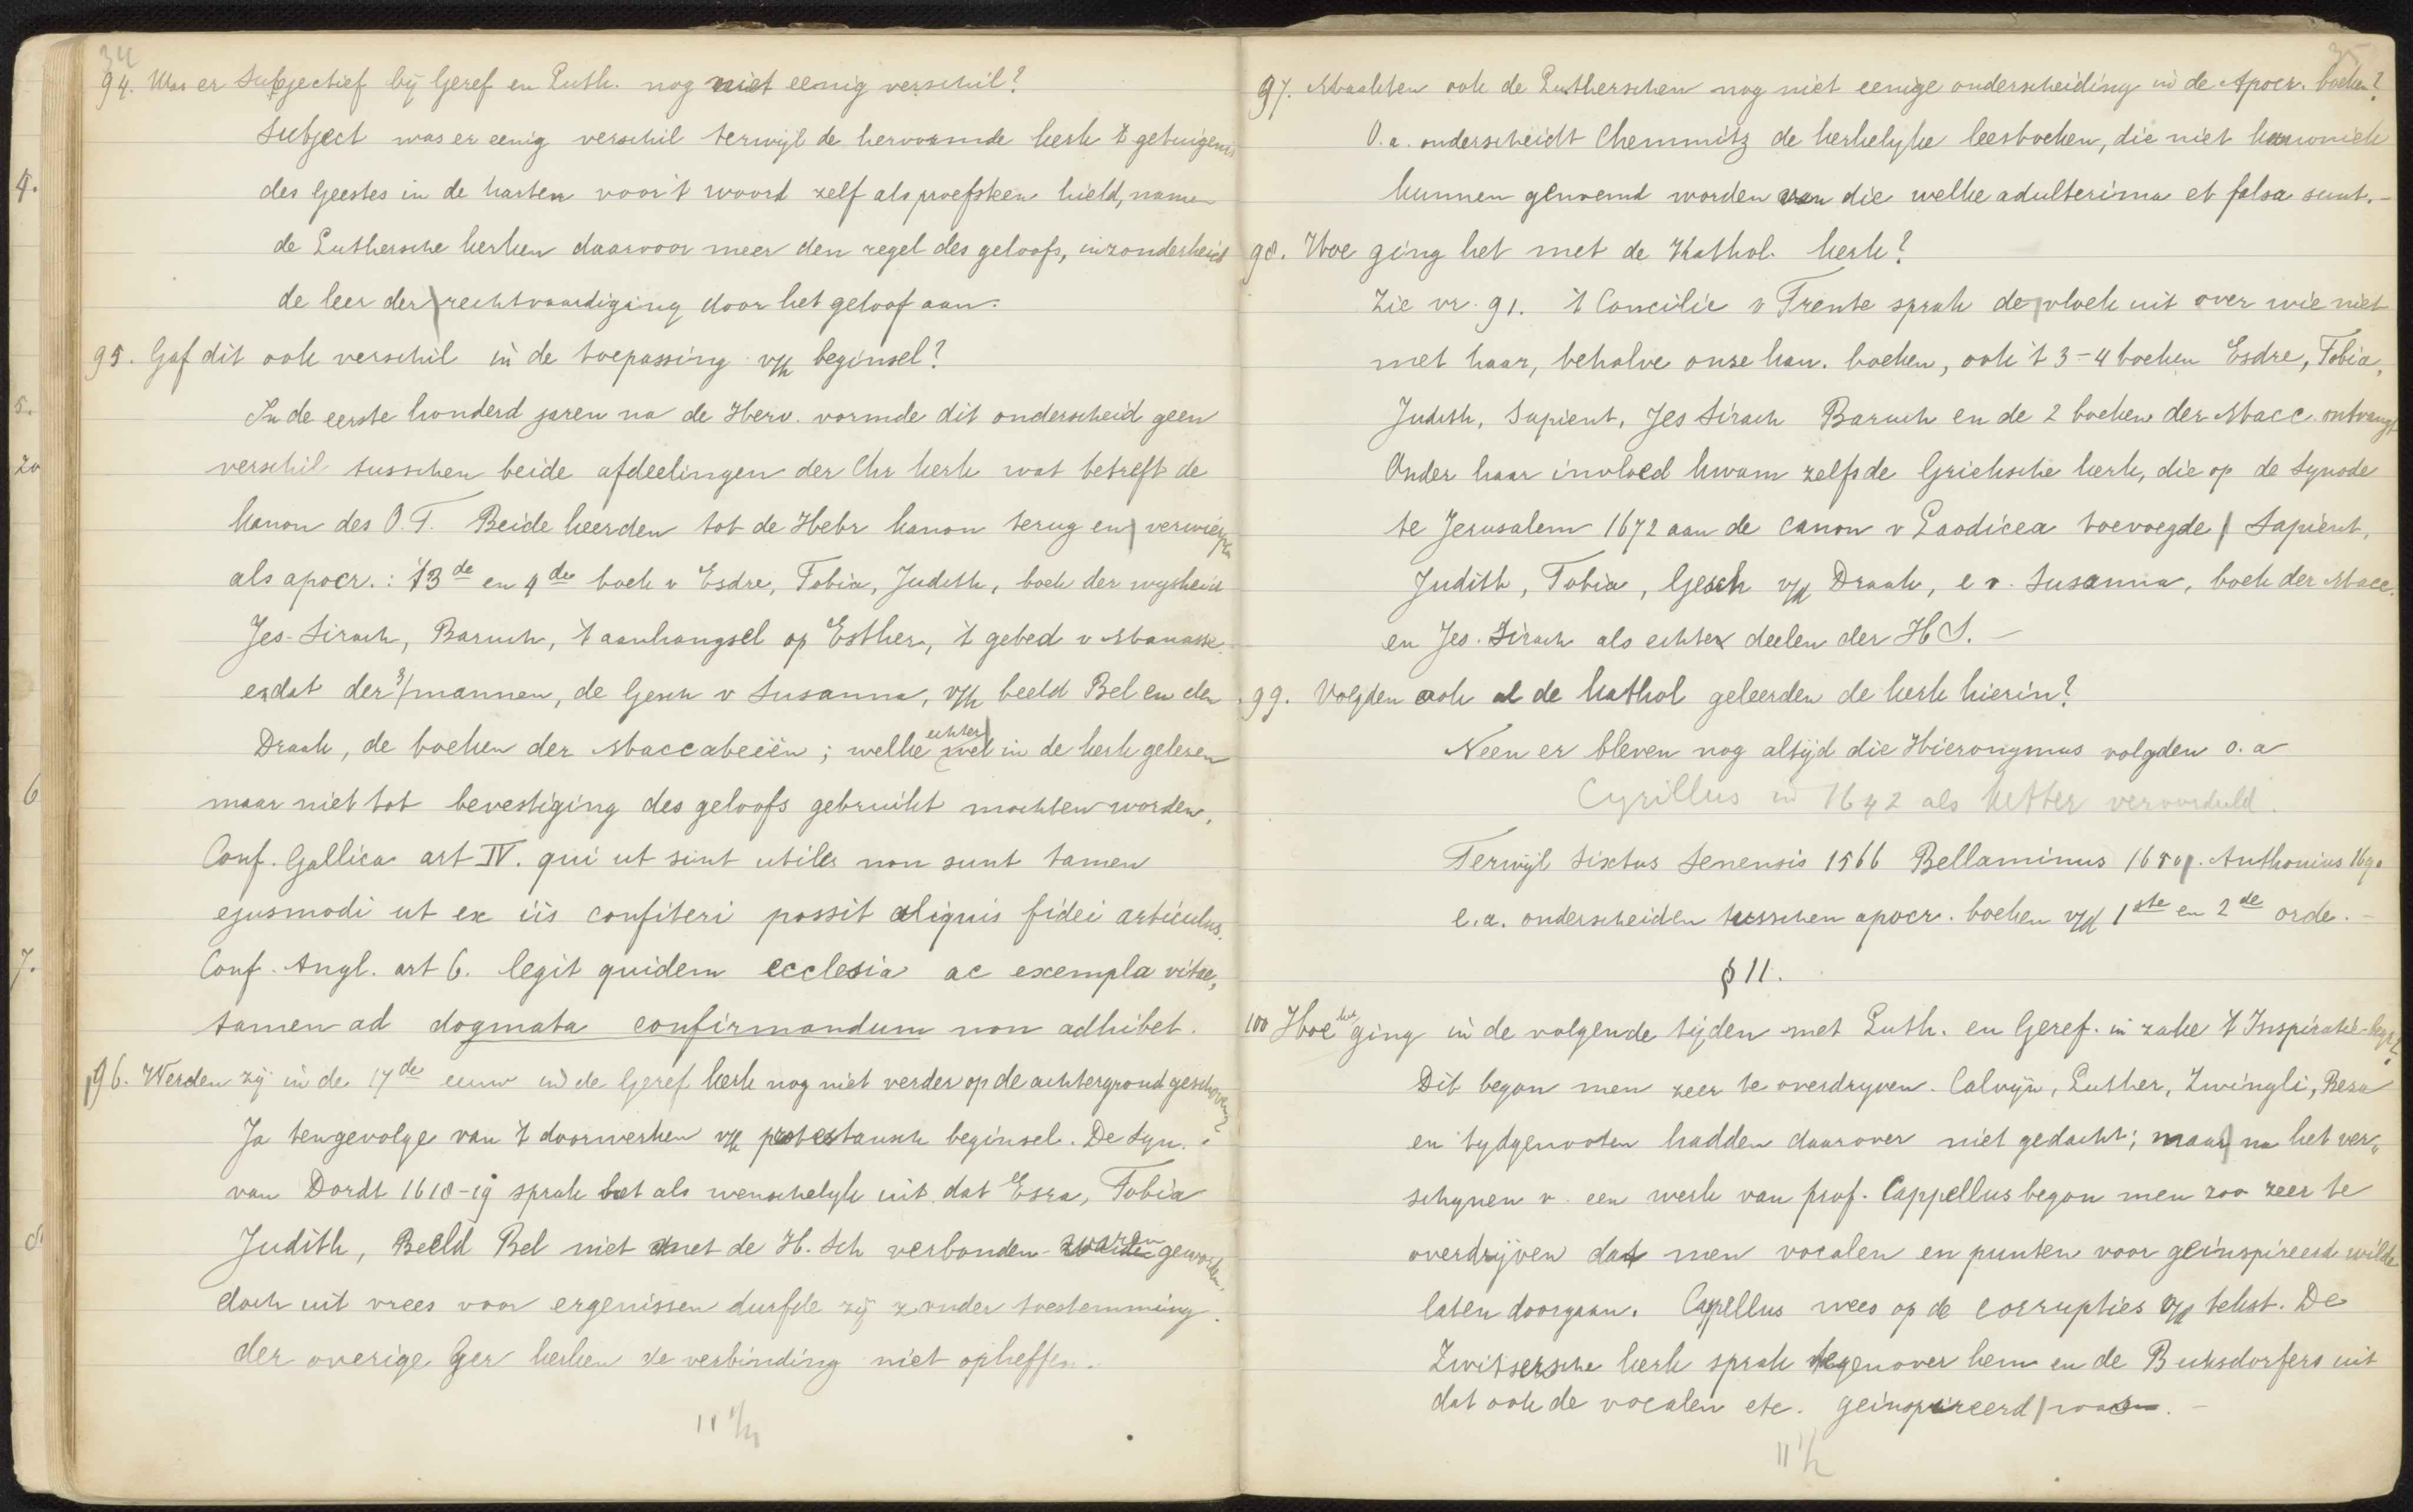 34
94. Was er Subjectief bij Geref en Luth. nog niet eenig verschil?
Subject was er eenig verschil terwijl de hervormde kerk 't getuigenis
des Geestes in de harten voor 't woord zelf als proefsteen hield, namen
de Luthersche kerken daarvoor meer den regel des geloofs, inzonderheid
de leer der rechtvaardiging door het geloof aan.
95. Gaf dit ook verschil in de toepassing v/h beginsel?
In de eerste honderd jaren na de Herv. vormde dit onderscheid geen
verschil tusschen beide afdeelingen der Chr kerk wat betreft de
kanon des O.T. Beide keerden tot de Hebr kanon terug en verwierpen
als apocr.: 't 3de en 4de boek v Esdre, Tobia, Judith, boek der wysheid
Jes-Sirach, Baruch, 't aanhangsel op Esther, 't gebed v Manasse.
en dat der 3 mannen, de Gesch v Susanna, v/h beeld Bel en den
Draak, de boeken der Maccabeeën; welke echter wel in de kerk gelezen
maar niet tot bevestiging des geloofs gebruikt mochten worden.
Conf. Gallica art IV. qui ut sint utiles non sunt tamen
ejusmodi ut ex iis confiteri possit aliquis fidei articulus.
Conf. Angl. art 6. legit quidem ecclesia ac exempla vitae,
tamen ad dogmata confirmandum non adhibet.
96. Werden zij in de 17de eeuw in de Geref kerk nog niet verder op de achtergrond geschoven?
Ja tengevolge van 't doorwerken v/h protestansch beginsel. De Syn.
van Dordt 1618-19 sprak het als wenschelyk uit dat Esra, Tobia
Judith, Beeld Bel niet met de H. Sch verbonden waren geworden,
doch uit vrees voor ergenissen durfde zij zonder toestemming
der overige Ger kerken de verbinding niet opheffen.
11 1/2
35
97. Maakten ook de Lutherschen nog niet eenige onderscheiding in de Apocr. boeken?
O.a. onderscheidt Chemnitz de kerkelyke leesboeken, die niet kanoniek
kunnen genoemd worden van die welke adulterima et falsa sunt.-
98. Hoe ging het met de Kathol. kerk?
Zie vr. 91. 't Concilie v Trente sprak de vloek uit over wie niet
met haar, behalve onze kan. boeken, ook 't 3-4 boeken Esdre, Tobia,
Judith, Sapient, Jes Sirach Baruch en de 2 boeken der Macc. ontvangt
Onder haar invloed kwam zelfs de Grieksche kerk, die op de Synode
te Jerusalem 1672 aan de canon v Laodicea toevoegde Sapient,
Judith, Tobia, Gesch v/d Draak, e v. Susanna, boek der Macc.
en Jes. Sirach als echte deelen der H S. -
99. Volgden ook al de kathol geleerden de kerk hierin?
Neen er bleven nog altijd die Hieronymus volgden o.a
Cyrillus in 1642 als ketter veroordeeld.
Terwijl Sixtus Senensis 1566 Bellaminus Anthonius 1690
e.a. onderscheiden tusschen apocr. boeken v/d 1ste en 2de orde. -
§ 11.
100 Hoe het ging in de volgende tijden met Luth. en Geref. in zake 't Inspiratie-begr?
Dit begon men zeer te overdryven. Calvijn, Luther, Zwingli, Beza
en tydgenooten hadden daarover niet gedacht; maar na het ver„
schynen v. een werk van prof. Cappellus begon men zoo zeer te
overdrijven dat men vocalen en punten voor geïnspireerd wilde
laten doorgaan. Cappellus wees op de corrupties v/d tekst. De
Zwitsersche kerk sprak tegenover hem en de Buksdorfers uit
dat ook de vocalen etc. geïnspireerd waren. -
11 1/2
4.
5.
20
6
7.
8